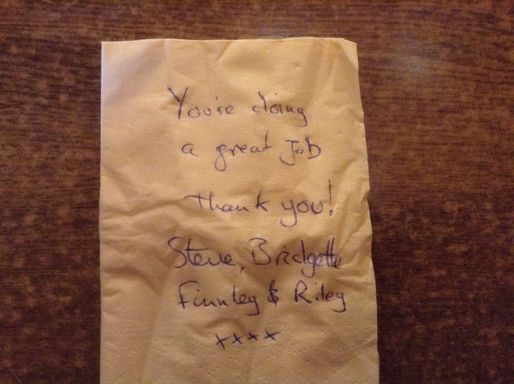 You're doing
a great Job
Thank you!
Steve, Bridgette
Finnley & Riley
xxxx